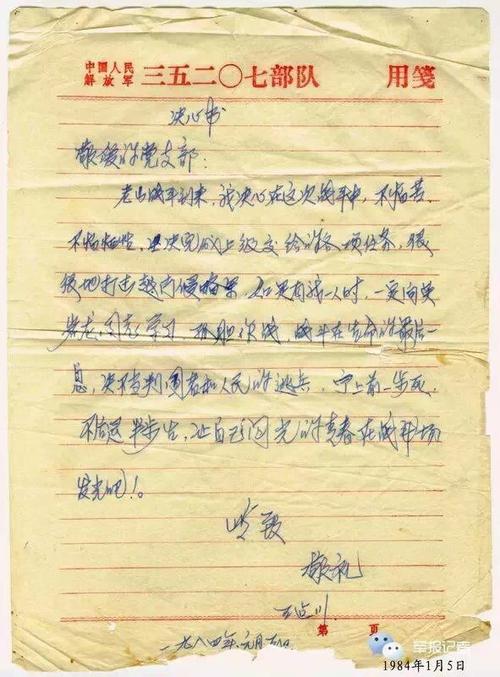 中国人民
解放军 三五二〇七部队 用笺
决心书
敬爱的党支部：
老山战斗到来，我决心在这次战斗中，不怕苦、
不怕牺牲，坚决完成上级交给的各项任务，狠
狠地打击越南侵略军。如果有我一人时，一定向
岩龙同志学习，孤胆作战，战斗在生命的最后一
息，决不当叛国者和人民的逃兵，宁上前一步死，
不后退半步生，让自己闪光的青春在战斗场
发光吧！。
此致
敬礼
川
一九八四年元月五日
第 页
军报记者
1984年1月5日